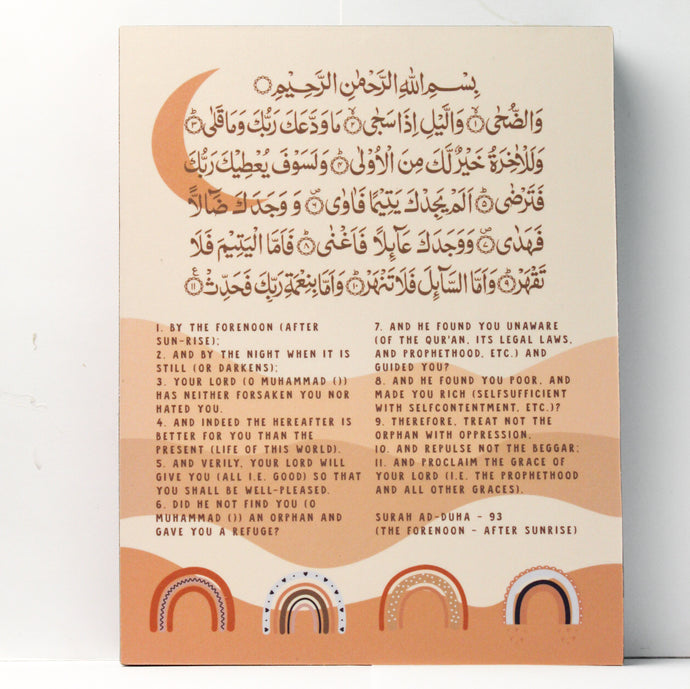 بِسْمِ اللهِ الرَّحْمٰنِ الرَّحِيْمِ
وَالضُّحٰى ١ وَالَّيْلِ اِذَا سَجٰى ٢ مَا وَدَّعَكَ رَبُّكَ وَمَا قَلٰى ٣
وَلَلْاٰخِرَةُ خَيْرٌ لَّكَ مِنَ الْاُوْلٰى ٤ وَلَسَوْفَ يُعْطِيْكَ رَبُّكَ
فَتَرْضٰى ٥ اَلَمْ يَجِدْكَ يَتِيْمًا فَاٰوٰى ٦ وَوَجَدَكَ ضَآلًّا
فَهَدٰى ٧ وَوَجَدَكَ عَآئِلًا فَاَغْنٰى ٨ فَاَمَّا الْيَتِيْمَ فَلَا
تَقْهَرْ ٩ وَاَمَّا السَّآئِلَ فَلَا تَنْهَرْ ١٠ وَاَمَّا بِنِعْمَةِ رَبِّكَ فَحَدِّثْ ١١
1. BY THE FORENOON (AFTER
SUN-RISE);
2. AND BY THE NIGHT WHEN IT IS
STILL (OR DARKENS);
3. YOUR LORD (O MUHAMMAD ())
HAS NEITHER FORSAKEN YOU NOR
HATED YOU.
4. AND INDEED THE HEREAFTER IS
BETTER FOR YOU THAN THE
PRESENT (LIFE OF THIS WORLD).
5. AND VERILY, YOUR LORD WILL
GIVE YOU (ALL I.E. GOOD) SO THAT
YOU SHALL BE WELL-PLEASED.
6. DID HE NOT FIND YOU (O
MUHAMMAD ()) AN ORPHAN AND
GAVE YOU A REFUGE?
7. AND HE FOUND YOU UNAWARE
(OF THE QUR'AN, ITS LEGAL LAWS,
AND PROPHETHOOD, ETC.) AND
GUIDED YOU?
8. AND HE FOUND YOU POOR, AND
MADE YOU RICH (SELFSUFFICIENT
WITH SELFCONTENTMENT, ETC.)?
9. THEREFORE, TREAT NOT THE
ORPHAN WITH OPPRESSION,
10. AND REPULSE NOT THE BEGGAR;
11. AND PROCLAIM THE GRACE OF
YOUR LORD (I.E. THE PROPHETHOOD
AND ALL OTHER GRACES).
SURAH AD-DUHA - 93
(THE FORENOON - AFTER SUNRISE)